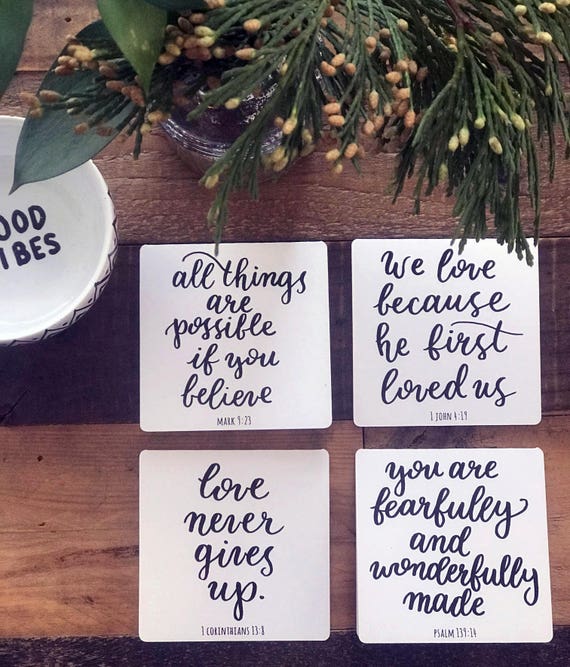 OOD
IBES
all things
are
possible
if you
believe
MARK 9:23
We love
because
he first
loved us
1 JOHN 4:19
love
never
gives
up.
1 CORINTHIANS 13:8
you are
fearfully
and
wonderfully
made
PSALM 139:14